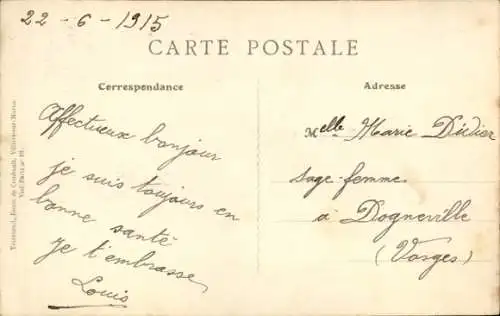 22-6-1915
CARTE POSTALE
Correspondance
Affectueux bonjour
je suis toujours en
bonne santé
je t'embrasse
Louis
Adresse
Melle Marie Didier
sage-femme
à Dogneville
(Vosges)